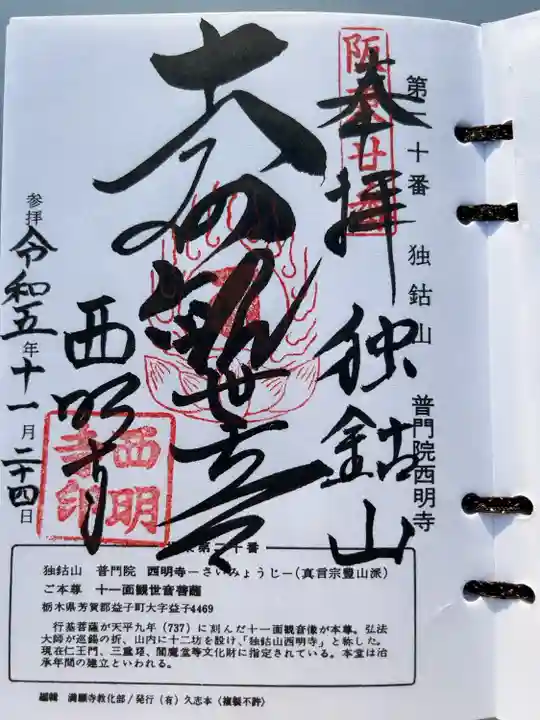 第二十番 独鈷山 普門院西明寺
奉拝 独鈷山
西明寺
参拝 令和五年十一月二十四日
西明
寺印
独鈷山 普門院 西明寺−さいみょうじ−(真言宗豊山派)
ご本尊 十一面観世音菩薩
栃木県芳賀郡益子町大字益子4469
行基菩薩が天平九年(737)に刻んだ十一面観音像が本尊。弘法
大師が巡錫の折、山内に十二坊を設け、「独鈷山西明寺」と称した。
現在仁王門、三重塔、閻魔堂等文化財に指定されている。本堂は治
承年間の建立といわれる。
編輯 満願寺教化部/発行(有)久志本〈複製不許〉